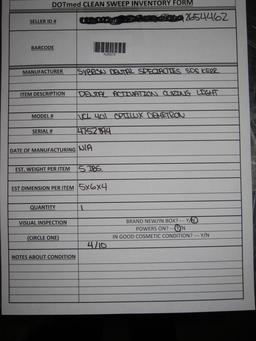 DOTmed CLEAN SWEEP INVENTORY FORM
SELLER ID # 2654462
BARCODE
MANUFACTURER SYBRON DENTAL SPECIALTIES SDS KERR
ITEM DESCRIPTION DENTAL ACTIVATION CURING LIGHT
MODEL # VCL 401 OPTILUX DEMETRON
SERIAL #
DATE OF MANUFACTURING N/A
EST. WEIGHT PER ITEM 5 lbs
EST DIMENSION PER ITEM 5x6x4
QUANTITY 1
VISUAL INSPECTION BRAND NEW/IN BOX? --- Y/N
POWERS ON? --- Y/N
(CIRCLE ONE) IN GOOD COSMETIC CONDITION? --- Y/N
4/10
NOTES ABOUT CONDITION